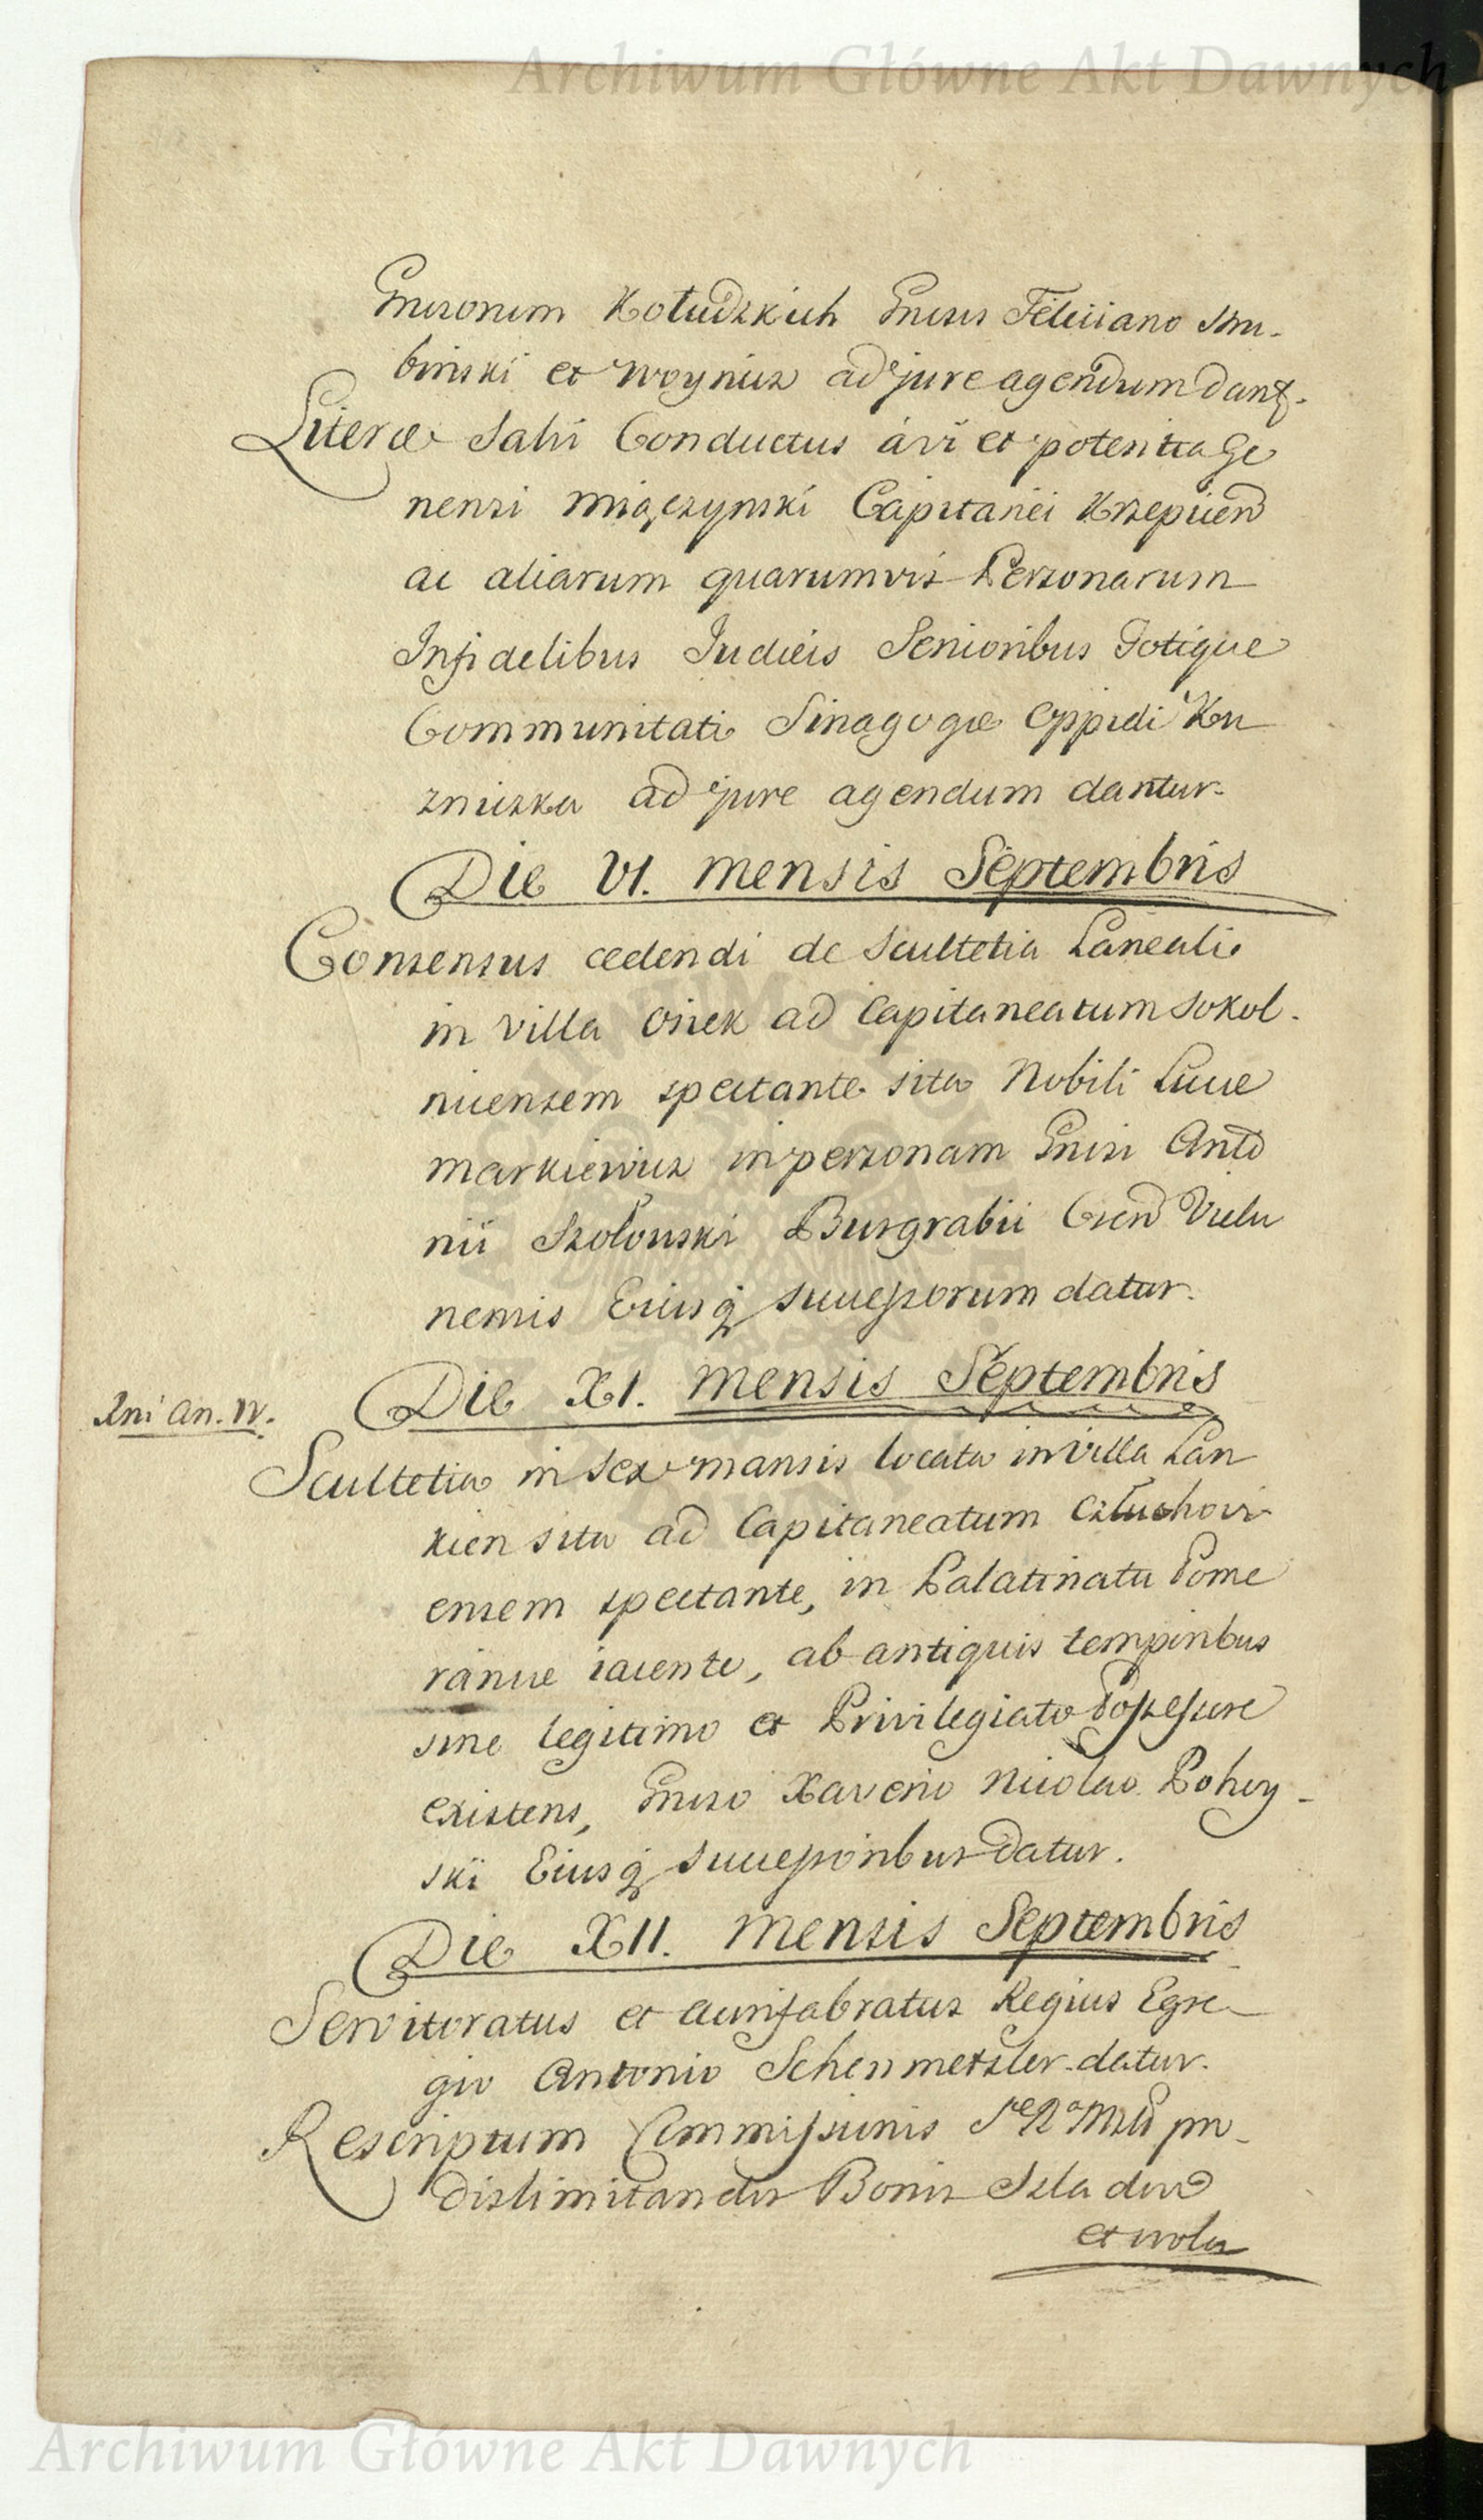 Archiwum Główne Akt Dawnych
Gnerorum Kołudzkich Gneris Feliciano Sku-
binski et Woynicz ad jure agendum dant.
Literæ Salvi Conductus a vi et potentia Ge
nerosi Miączynski Capitanei Krzepicen
ac aliarum quarumvis Personarum
Infidelibus Judæis Senioribus Totique
Communitati Sinagogæ Oppidi Ku
zniczka ad jure agendum dantur.
Die VI. Mensis Septembris
Consensus cedendi de Scultetia Laneali
in Villa Osiek ad Capitaneatum Sokol-
nicensem spectante sita Nobili Lucæ
Markiewicz in personam Gnrsi Anto
nii Szołowski Burgrabii Cren Vielu
nensis Eiusq Successorum datur.
Die XI. Mensis Septembris
Ani An. IV.
Scultetia in Sex mansis locata in Villa Lan
kien sita ad Capitaneatum Człuchovi
ensem spectante, in Palatinatu Pome
raniæ iacente, ab antiquis temporibus
sine legitimo et Privilegiato Possessore
existens, Gneroso Xaverio Nicolao
ski Eiusq Successoribus datur.
Die XII. Mensis Septembris
Servitoratus et Aurifabratus Regius Egre
gio Antonio Schenmetzler datur.
Rescriptum Commissionis
Dislimitandis Bonis
et Wola
Archiwum Główne Akt Dawnych